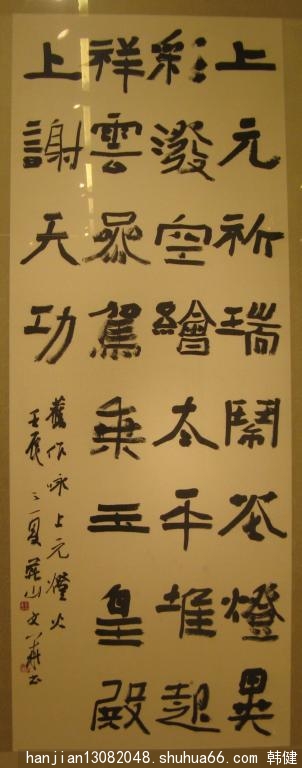 上元祈瑞鬧花燈異
彩潑空繪太平堆起
祥雲駕乘玉皇殿
上謝天功
舊作咏上元燈火
壬辰之夏山文
hanjian13082048.shuhua66.com 韩健